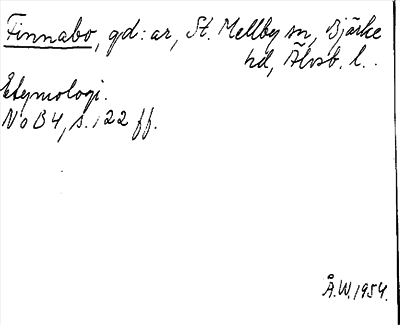 Finnabo, gd:ar, St. Mellby sn, Bjärke
hd, Älvsb. l.
Etymologi.
NoB 4, s. 122 ff.
Å.W. 1954.